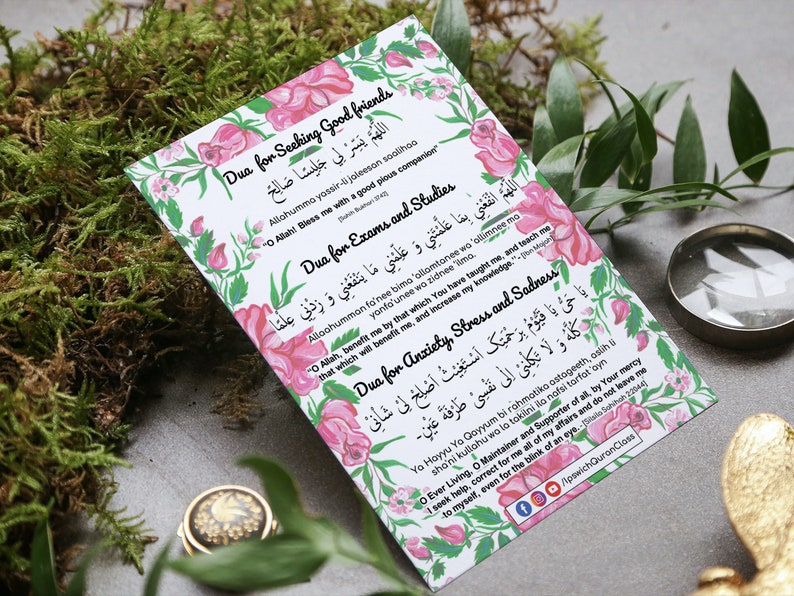 Dua for Seeking Good friends
اللَّهُمَّ يَسِّرْ لِي جَلِيسًا صَالِحً
Allahumma yassir-li jaleesan saalihaa
"O Allah! Bless me with a good pious companion"
[Sahih Bukhari 3743]
Dua for Exams and Studies
اللَّهُمَّ انْفَعْنِي بِمَا عَلَّمْتَنِي وَ عَلِّمْنِي مَا يَنْفَعُنِي وَ زِدْنِي عِلْمًا
Allaahumman fa'nee bima 'allamtanee wa' allimnee ma
yanfa'unee wa zidnee 'ilma.
"O Allah, benefit me by that which You have taught me, and teach me
that which will benefit me, and increase my knowledge." -[Ibn Majah]
Dua for Anxiety, Stress and Sadness
يَا حَيُّ يَا قَيُّوْمُ بِرَحْمَتِكَ اَسْتَغِيْثُ اَصْلِحْ لِيْ شَأْنِيْ
كُلَّهُ وَ لَا تَكِلْنِيْ اِلٰى نَفْسِيْ طَرْفَةَ عَيْنٍ-
Ya Hayyu Ya Qayyum bi rahmatika astageeth, aslih li
sha'ni kullahu wa la takilni ila nafsi tarfat 'ayn
O Ever Living, O Maintainer and Supporter of all, by Your mercy
I seek help, correct for me all of my affairs and do not leave me
to myself, even for the blink of an eye..-[Silsila Sahihah 22044]
/IpswichQuranClass